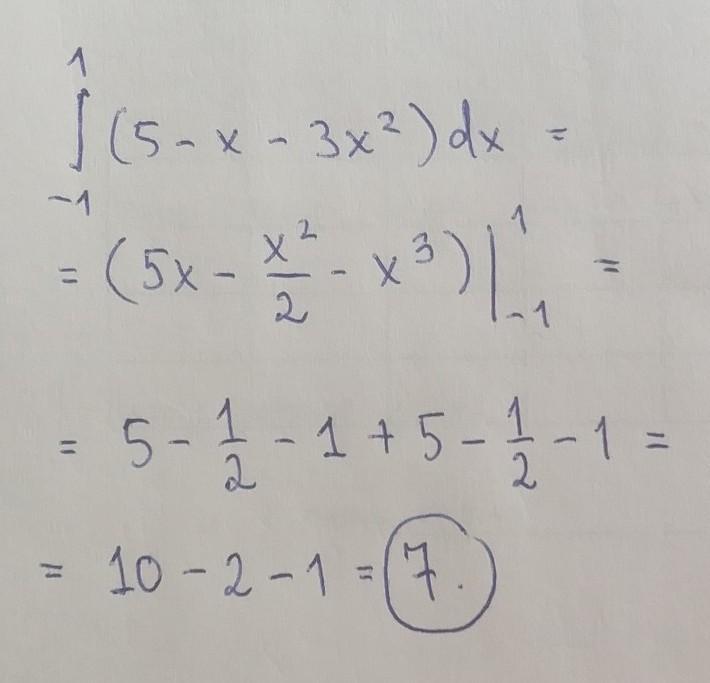 ∫_{-1}^{1} (5 - x - 3x²) dx =
= (5x - x²/2 - x³) |_{-1}^{1} =
= 5 - 1/2 - 1 + 5 - 1/2 - 1 =
= 10 - 2 - 1 = 7.